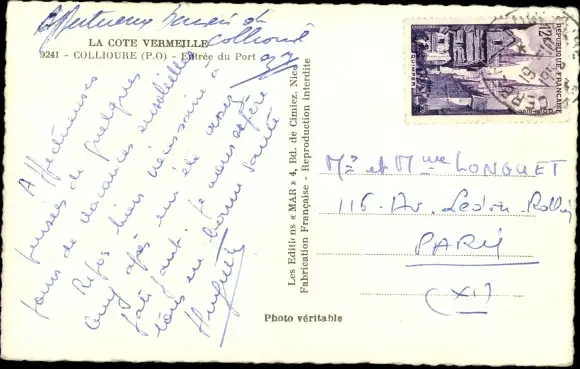 Affectueux baisers de
Collioure
LA COTE VERMEILLE
9241 - COLLIOURE (P.O) - Entrée du Port
Affectueuses
pensées de quelques
jours de vacances ensoleillées
Repos bien nécessaire à
Guy après un été assez
fatigant. Je vous espère
tous en bonne santé
Huguette
Les Editions « MAR » 4, Bd. de Cimiez, Nice
Fabrication Française - Reproduction interdite
Photo véritable
12F
REPUBLIQUE FRANÇAISE
QUIMPER
Mr et Mme LONGUET
116. Av. Ledru-Rollin
PARIS
(XI)